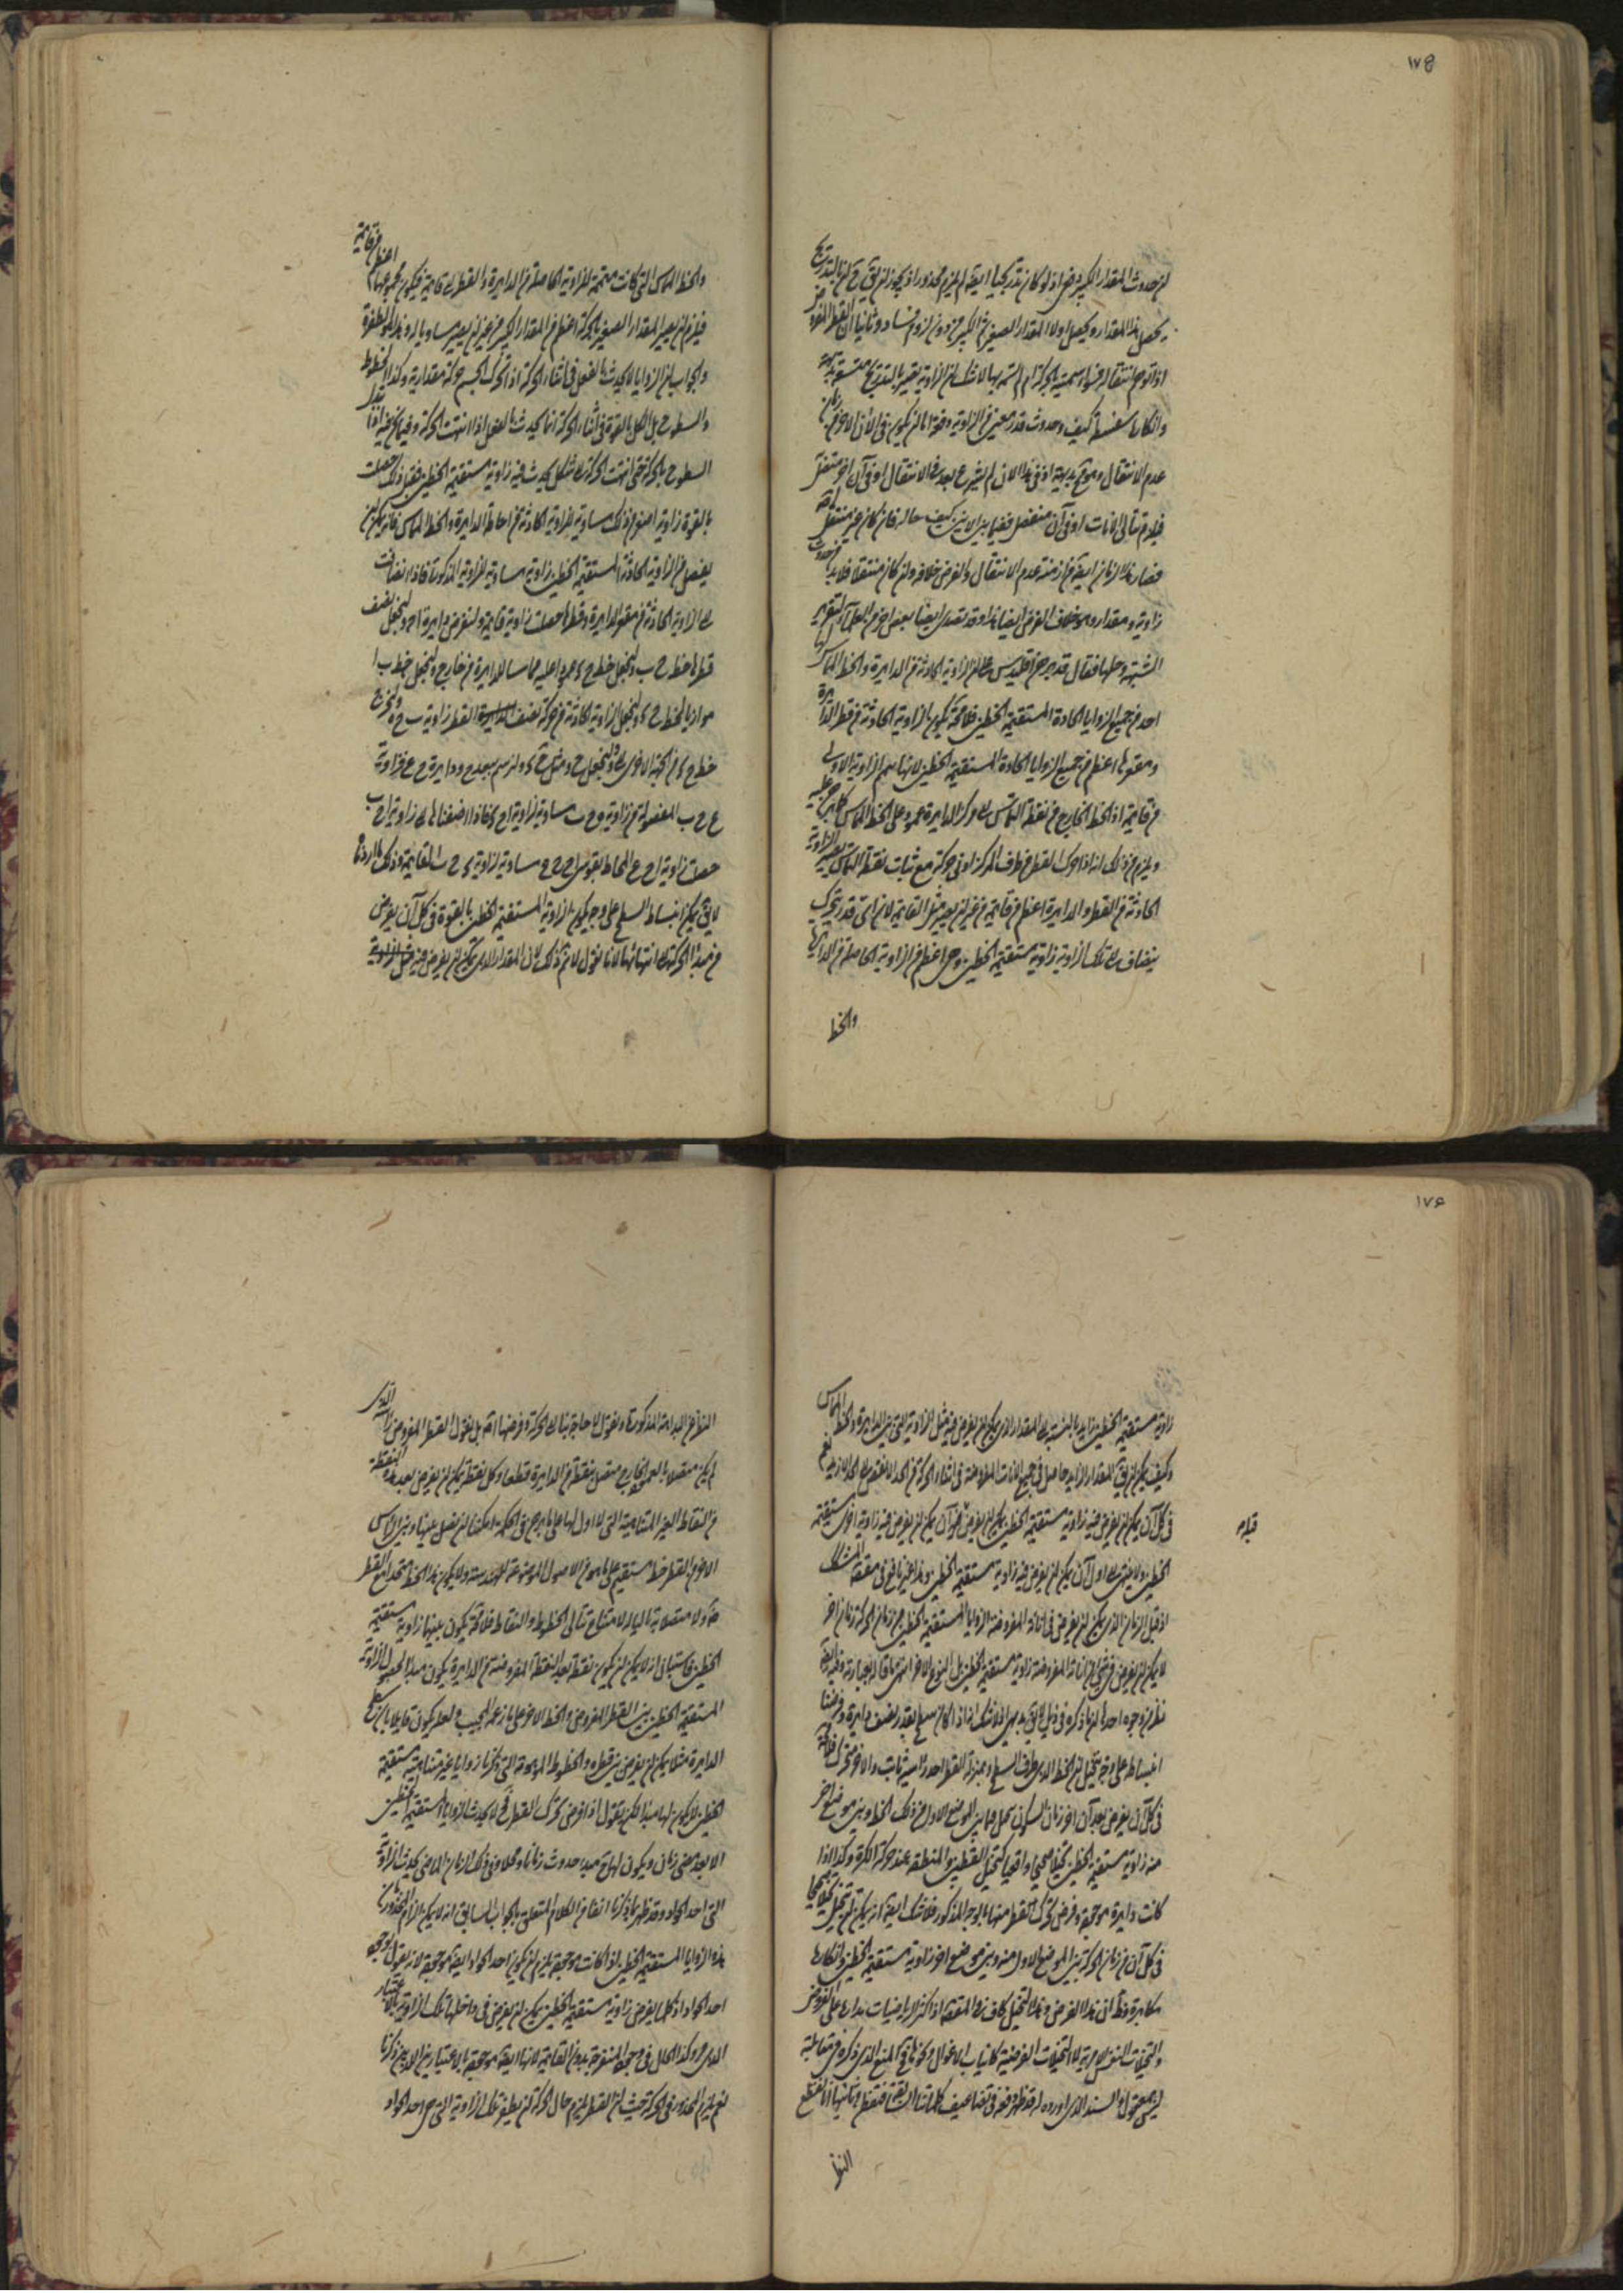 ١٧٥
لان حدوث المقدار الكبير اذ لو كان تدريجيا ايضا لم يلزم محذور اذ يجوز ان بالتدريج
يحصل هذا المقدار ويحصل اولا المقدار الصغير ثم الكبير من دون لزوم فساد وثانيا ان القطر المفروض
اذا توهم انتقاله الحركة ام لا شك ان الزاوية تتغير بالتدريج
وانكاره سفسطة كيف وحدوث قدر معين من الزاوية دفعة اما ان يكون في الآن
عدم الانتقال اذ في هذا الآن لم يشرع بعد في الانتقال او في آن آخر متصل
فيلزم تتالي الآنات او في آن منفصل ففيما بين الآنين كيف حاله فان كان غير منتقل
فصار هذا الزمان ايضا من ازمنة عدم الانتقال والفرض خلافه وان كان منتقلا فلابد من حدوث
زاوية ومقدار وهو خلاف الفرض ايضا هذا وقد تصدى ايضا بعض آخر من العلماء لتقرير
الشبهة وحلها فقال قد برهن اقليدس على ان الزاوية الحادثة من الدايرة والخط المماس لها
احد من جميع الزوايا الحادة المستقيمة الخطين فلا محة يكون الزاوية الحادثة من قطر الدايرة
ومقعرها اعظم من جميع الزوايا الحادة المستقيمة الخطين لانها تمام الزاوية الاولى
من قايمة اذ الخط الخارج من نقطة التماس الى مركز الدايرة عمود على الخط المماس كما برهن عليه
ويلزم من ذلك انه اذا حرك القطر من طرف المركز ادنى حركة مع ثبات نقطة التماس يصير الزاوية
الحادثة من القطر والدايرة اعظم من قايمة من غير ان يصير مثل القايمة لان اى قدر يتحرك
ينضاف الى تلك الزاوية زاوية مستقيمة الخطين وهي اعظم من الزاوية الحاصلة من الدايرة
والخط
والخط المماس التي كانت متممة للزاوية الحاصلة من الدايرة والقطر الى قايمة فيكون مجموعهما اعظم من قايمة
فيلزم ان يصير المقدار الصغير بالحركة اعظم من المقدار الكبير من غير ان يصير مساويا له وهذا هو الطفرة
والجواب ان الزوايا لا يحدث بالفعل في اثناء الحركة اذا تحرك الجسم حركة مقدارية وكذا الخطوط
والسطوح بل الكل بالقوة في اثناء الحركة انما يحدث بالفعل اذا انتهت الحركة وفيما نحن فيه اذا
السطوح بالحركة حتى انتهت الحركة الى شكل يحدث فيه زاوية مستقيمة الخطين فقبل ذلك حصلت
بالقوة زاوية اصغر من ذلك مساوية للزاوية الحادثة من احاطة الدايرة والخط المماس فانه يمكن ان
يفصل من الزاوية الحادثة المستقيمة الخطين زاوية مساوية للزاوية المذكورة فاذا انضافت
الى الزاوية الحادثة من مقعر الدايرة وقطرها حصلت زاوية قايمة ولنفرض دايرة ا ح وليجعل نصف
قطرها خط ح ب وليجعل خط ح ء عمودا عليه مماسا للدايرة من خارج وليجعل خط ب ا
موازيا لخط ح ء وليجعل الزاوية الحادثة من حركة نصف القطر زاوية ب ح ه وليخرج
خط ح ء من الجهة الاخرى
ع ح ب المفصولة من زاوية مساوية لزاوية ا ح ء فاذا اضفناها الى زاوية ا ح ب
حصلت زاوية ا ح ع المحاط بقوس مساوية لزاوية ء ح ب القايمة وذلك ما اردنا
لا يق يمكن انبساط السطح على وجه يكون الزاوية المستقيمة الخطين بالقوة في كل آن يفرض
من مبدا الحركة الى انتهائها لانا نقول لا نم ذلك لان المقدار الذي يمكن ان يفرض فيه قبل الزاوية
١٧٦
زاوية مستقيمة الخطين زايد بالنسبة الى المقدار الذي يمكن ان يفرض فيه مثل الزاوية التي بين الدايرة والخط المماس
وكيف يمكن ان يق المقدار الزايد حاصل في جميع الآنات المفروضة في اثناء الحركة من الحد الانقص الى الحد الازيد نعم
في كل آن يمكن ان يفرض فيه زاوية مستقيمة الخطين يمكن ان يفرض آن يمكن ان يفرض فيه زاوية اخرى مستقيمة
قبله
الخطين ولا ينتهي الى اول آن يمكن ان يفرض فيه زاوية مستقيمة الخطين وهذا غير نافع في مقصد المشكك
اذ قبل الزمان الذي يمكن ان يفرض في آناته المفروضة الزوايا المستقيمة الخطين من زمان الحركة زمان آخر
لا يمكن ان يفرض في شيء من آناته المفروضة زاوية مستقيمة الخطين بل النوع الآخر انتهى ما قاله بعبارته وفيه ايضا
نظر من وجوه احدها ان ما ذكره في ذيل لا يق بديهي اذ لا شك انه اذا كان سطح بقدر نصف دايرة وفرضنا
انبساطه على وجه يتخيل ان الخط الذي طرف السطح وبمنزلة القطر احد راسيه ثابت والآخر متحرك فلا شك انه
في كل آن يفرض بعد آن آخر زمان السكون يحصل فيما بين الموضع الاول من ذلك الخط وبين موضع آخر
منه زاوية مستقيمة الخطين تخيلا صحيحا واقعيا كتخيل القطبين والمنطقة عند حركة الكرة وكذا اذا
كانت دايرة موجودة وفرض تحرك القطر منها بالوجه المذكور فلا شك ايضا انه يمكن ان يتخيل تخيلا صحيحا
في كل آن من زمان الحركة بين الموضع الاول منه وبين موضع آخر زاوية مستقيمة الخطين وانكارها
مكابرة وظ ان هذا الفرض وهذا التخيل كاف في المقصد اذ اكثر الرياضيات مدارها على الفروض
والتخيلات النفس الامرية لا التخيلات الفرضية كانياب الاغوال ونحوها فالمنع الذي ذكره في مقابلته
ليس بمعقول والسند الذي اورده له قد ظهر دفعه في تضاعيف كلماتنا السابقة فتفطن وثانيها انا نقطع
النظر
النظر عن البداهة المذكورة ونقول لا حاجة بنا الى الحركة وفرضها اصلا بل نقول القطر المفروض
لم يكن متصلا بالعمود الخارج متصل بنقطة من الدايرة قطعا وكل نقطة يمكن ان يفرض بعد هذه النقطة
من النقاط الغير المتناهية التي لا اول لها على ما برهن في الحكمة امكننا ان نصل بينها وبين الراس
الآخر من القطر خط مستقيم على ما هو من الاصول الموضوعة للهندسة ولا يكون هذا الخط متحدا مع القطر
ولا متصلا به بالبداهة لامتناع تتالي الخطوط والنقاط فلا محة يكون بينهما زاوية مستقيمة
الخطين فاستبان انه لا يمكن ان يكون نقطة بعد النقطة المفروضة من الدايرة يكون مبدا لحصول الزاوية
المستقيمة الخطين بين القطر المفروض والخط الآخر على ما زعمه المجيب ولعله يكون قايلا بان
الدايرة مثلا يمكن ان يفرض بين قطره والخطوط الموهومة التي ذكرنا زوايا غير متناهية مستقيمة
الخطين لا يكون لها مبدا لكن يقول اذا فرض تحرك القطر فح لا يحدث الزوايا المستقيمة الخطين
الا بعد مضي زمان ويكون لها ح مبدء حدوث زمانا ومحلا وفي ذلك الزمان الماضي يحدث الزاوية
التي احد الحواد وقد ظهر بما ذكرنا آنفا من الكلام المتعلق بالجواب السابق انه لا يمكن الزام المحذور بان
هذه الزوايا المستقيمة الخطين اذا كانت موجودة يلزم ان يكون احد الحواد ايضا موجودة لانه يقول بوجود
احد الحواد اذ كلما يفرض زاوية مستقيمة الخطين يمكن ان يفرض في داخلها تلك الزاوية بالاعتبار
الذي مر وكذا الحال في وجود المنفرجة بدون القايمة لانها ايضا موجودة بالاعتبارين الذين ذكرنا
نعم يلزم المحذور في الحركة حيث ان القطر يلزم حال الحركة ان يطفر تلك الزاوية التي هي احد الحواد